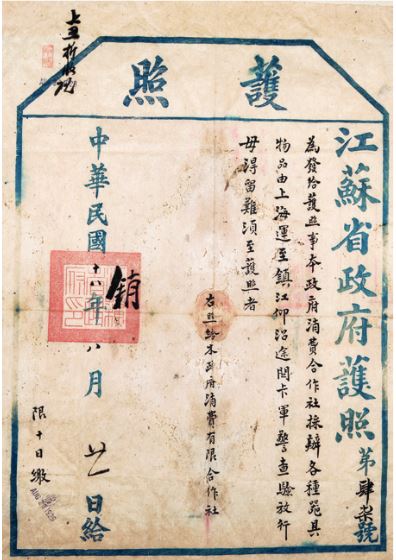 護照
江蘇省政府護照
第肆柒號
為發給護照事本政府消費合作社採辦各種器具
物品由上海運至鎮江仰沿途関卡軍警查驗放行
毋得留難須至護照者
右照給本政府消費有限合作社
中華民國十八年八月廿一日給
銷
限十日繳